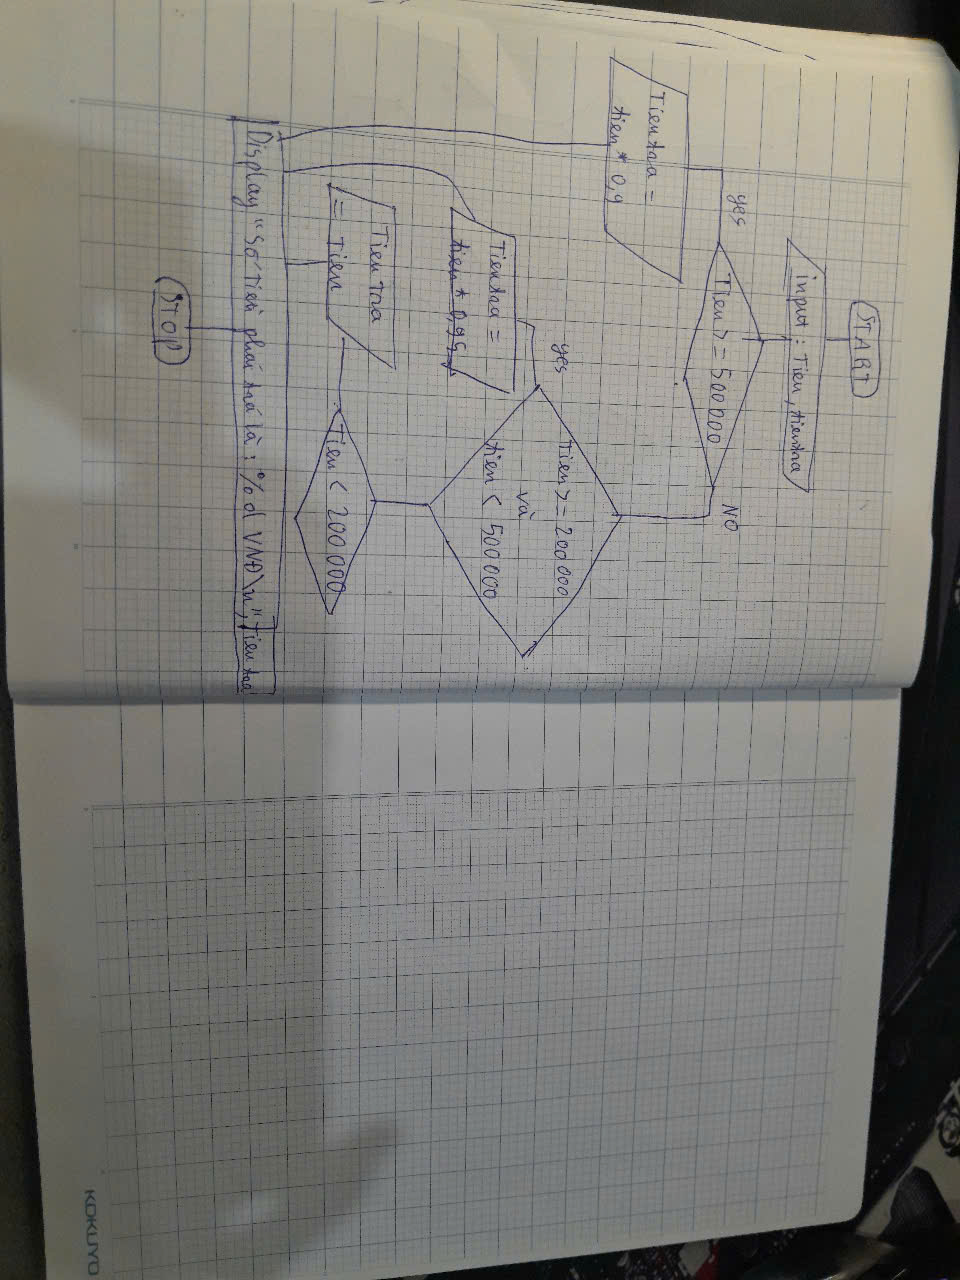 START
input : Tien, tientra
Tien >= 500000
yes
NO
Tientra =
tien * 0,9
Tien >= 200000
và
tien < 500000
yes
Tientra =
tien * 0,95
Tien < 200000
Tientra
= Tien
Display "Số tiền phải trả là : %d VNĐ\n", tientra
STOP
KOKUYO